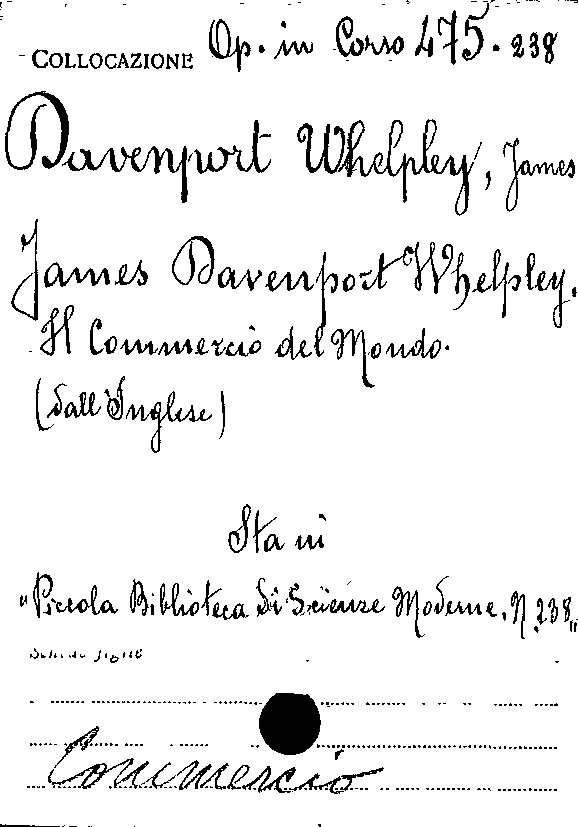 COLLOCAZIONE Op. in Corso 475. 238
Davenport Whelpley, James
James Davenport Whelpley.
Il Commercio del Mondo.
(dall'Inglese)
Sta in
"Piccola Biblioteca di Scienze Moderne, N. 238"
Commercio